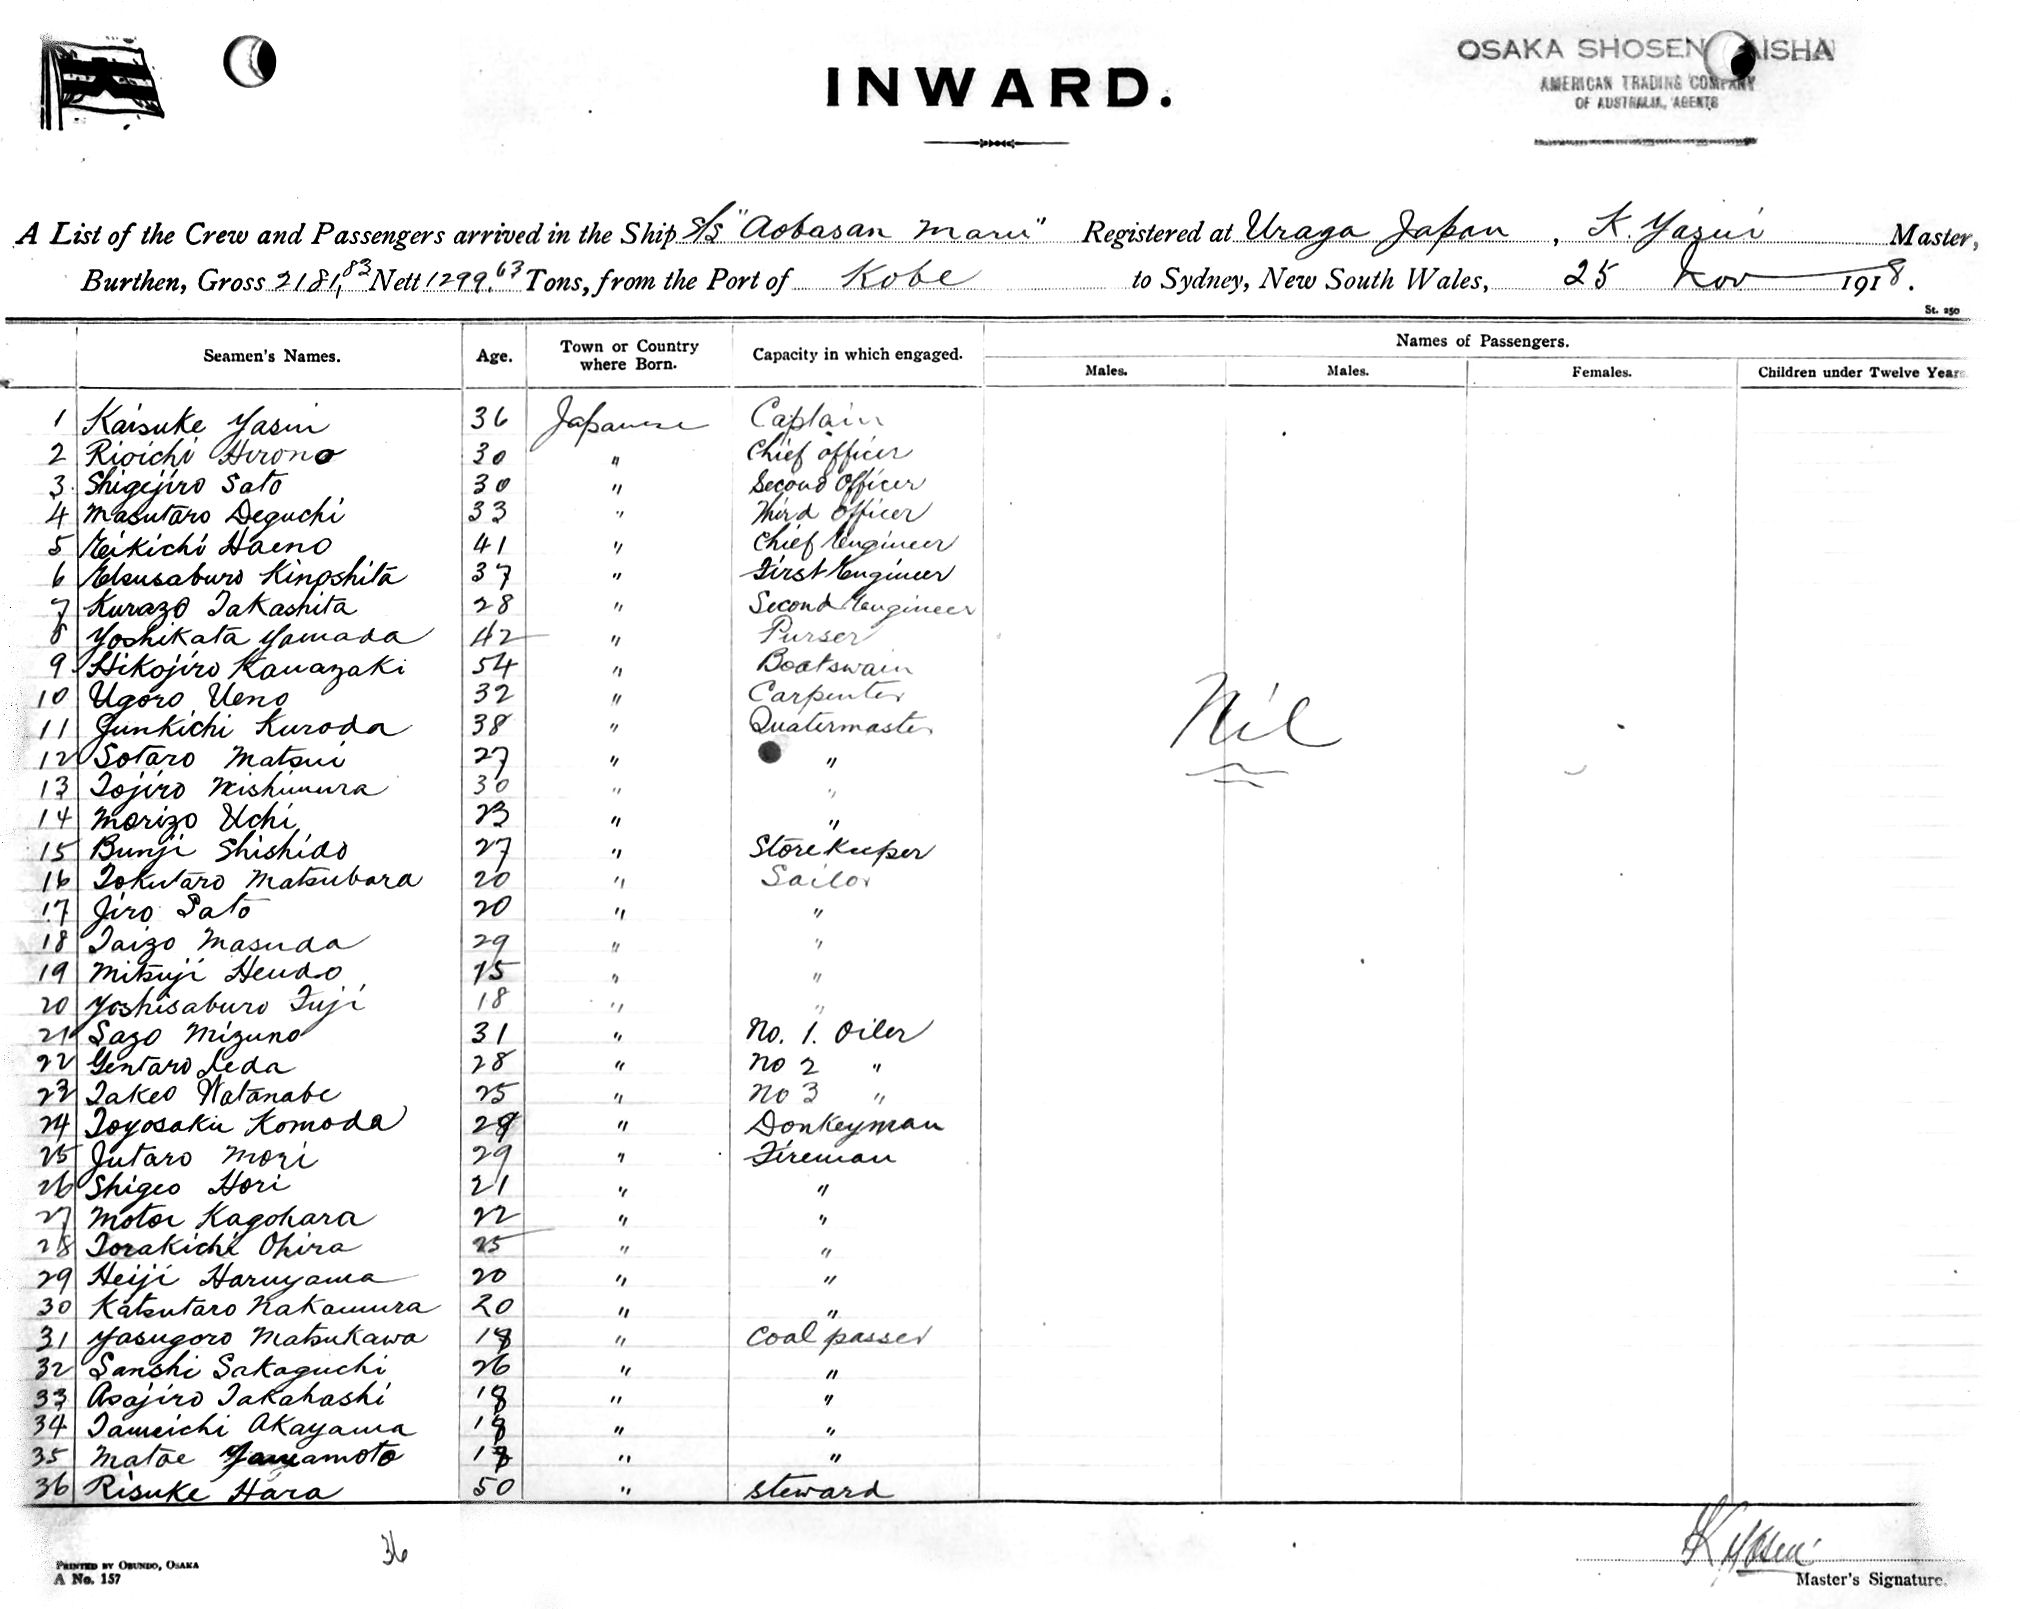 INWARD.
OSAKA SHOSEN KAISHA
AMERICAN TRADING COMPANY
OF AUSTRALIA, AGENTS
A List of the Crew and Passengers arrived in the Ship S/S "Aobasan Maru" Registered at Uraga Japan, K. Yasui Master,
Burthen, Gross 2181,83 Nett 1299.63 Tons, from the Port of Kobe to Sydney, New South Wales, 25 Nov 1918.
St. 250
Seamen's Names. Age. Town or Country where Born. Capacity in which engaged. Names of Passengers.
Males. Males. Females. Children under Twelve Years
1 Kaisuke Yasui 36 Japanese Captain
2 Rioichi Hirono 30 " Chief officer
3 Shigejiro Sato 30 " Second Officer
4 Masutaro Deguchi 33 " Third Officer
5 Eikichi Haeno 41 " Chief Engineer
6 Etsusaburo Kinoshita 37 " First Engineer
7 Kurazo Takashita 28 " Second Engineer
8 Yoshikata Yamada 42 " Purser
9 Hikojiro Kawazaki 54 " Boatswain
10 Ugoro Ueno 32 " Carpenter
11 Junkichi Kuroda 38 " Quatermaster
12 Sotaro Matsui 27 " "
13 Tojiro Nishimura 30 " "
14 Morizo Uchi 23 " "
15 Bunji Shishido 27 " Store Keeper
16 Tokutaro Matsubara 20 " Sailor
17 Jiro Sato 20 " "
18 Taizo Masuda 29 " "
19 Mitsuji Hendo 15 " "
20 Yoshisaburo Fuji 18 " "
21 Sazo Mizuno 31 " No. 1. Oiler
22 Gentaro Ueda 28 " No 2 "
23 Takeo Watanabe 25 " No 3 "
24 Toyosaku Komoda 29 " Donkeyman
25 Jutaro Mori 29 " Fireman
26 Shigeo Hori 21 " "
27 Motoi Kagohara 22 " "
28 Torakichi Ohira 25 " "
29 Heiji Haruyama 20 " "
30 Katsutaro Nakamura 20 " "
31 Yasugoro Matsukawa 18 " Coal passer
32 Sanshi Sakaguchi 26 " "
33 Asajiro Takahashi 18 " "
34 Tameichi Akayama 18 " "
35 Matae Yamamoto " "
36 Risuke Hara 50 " steward
Nil
36
K Yasui
Master's Signature.
PRINTED BY OBUNDO, OSAKA
A No. 157